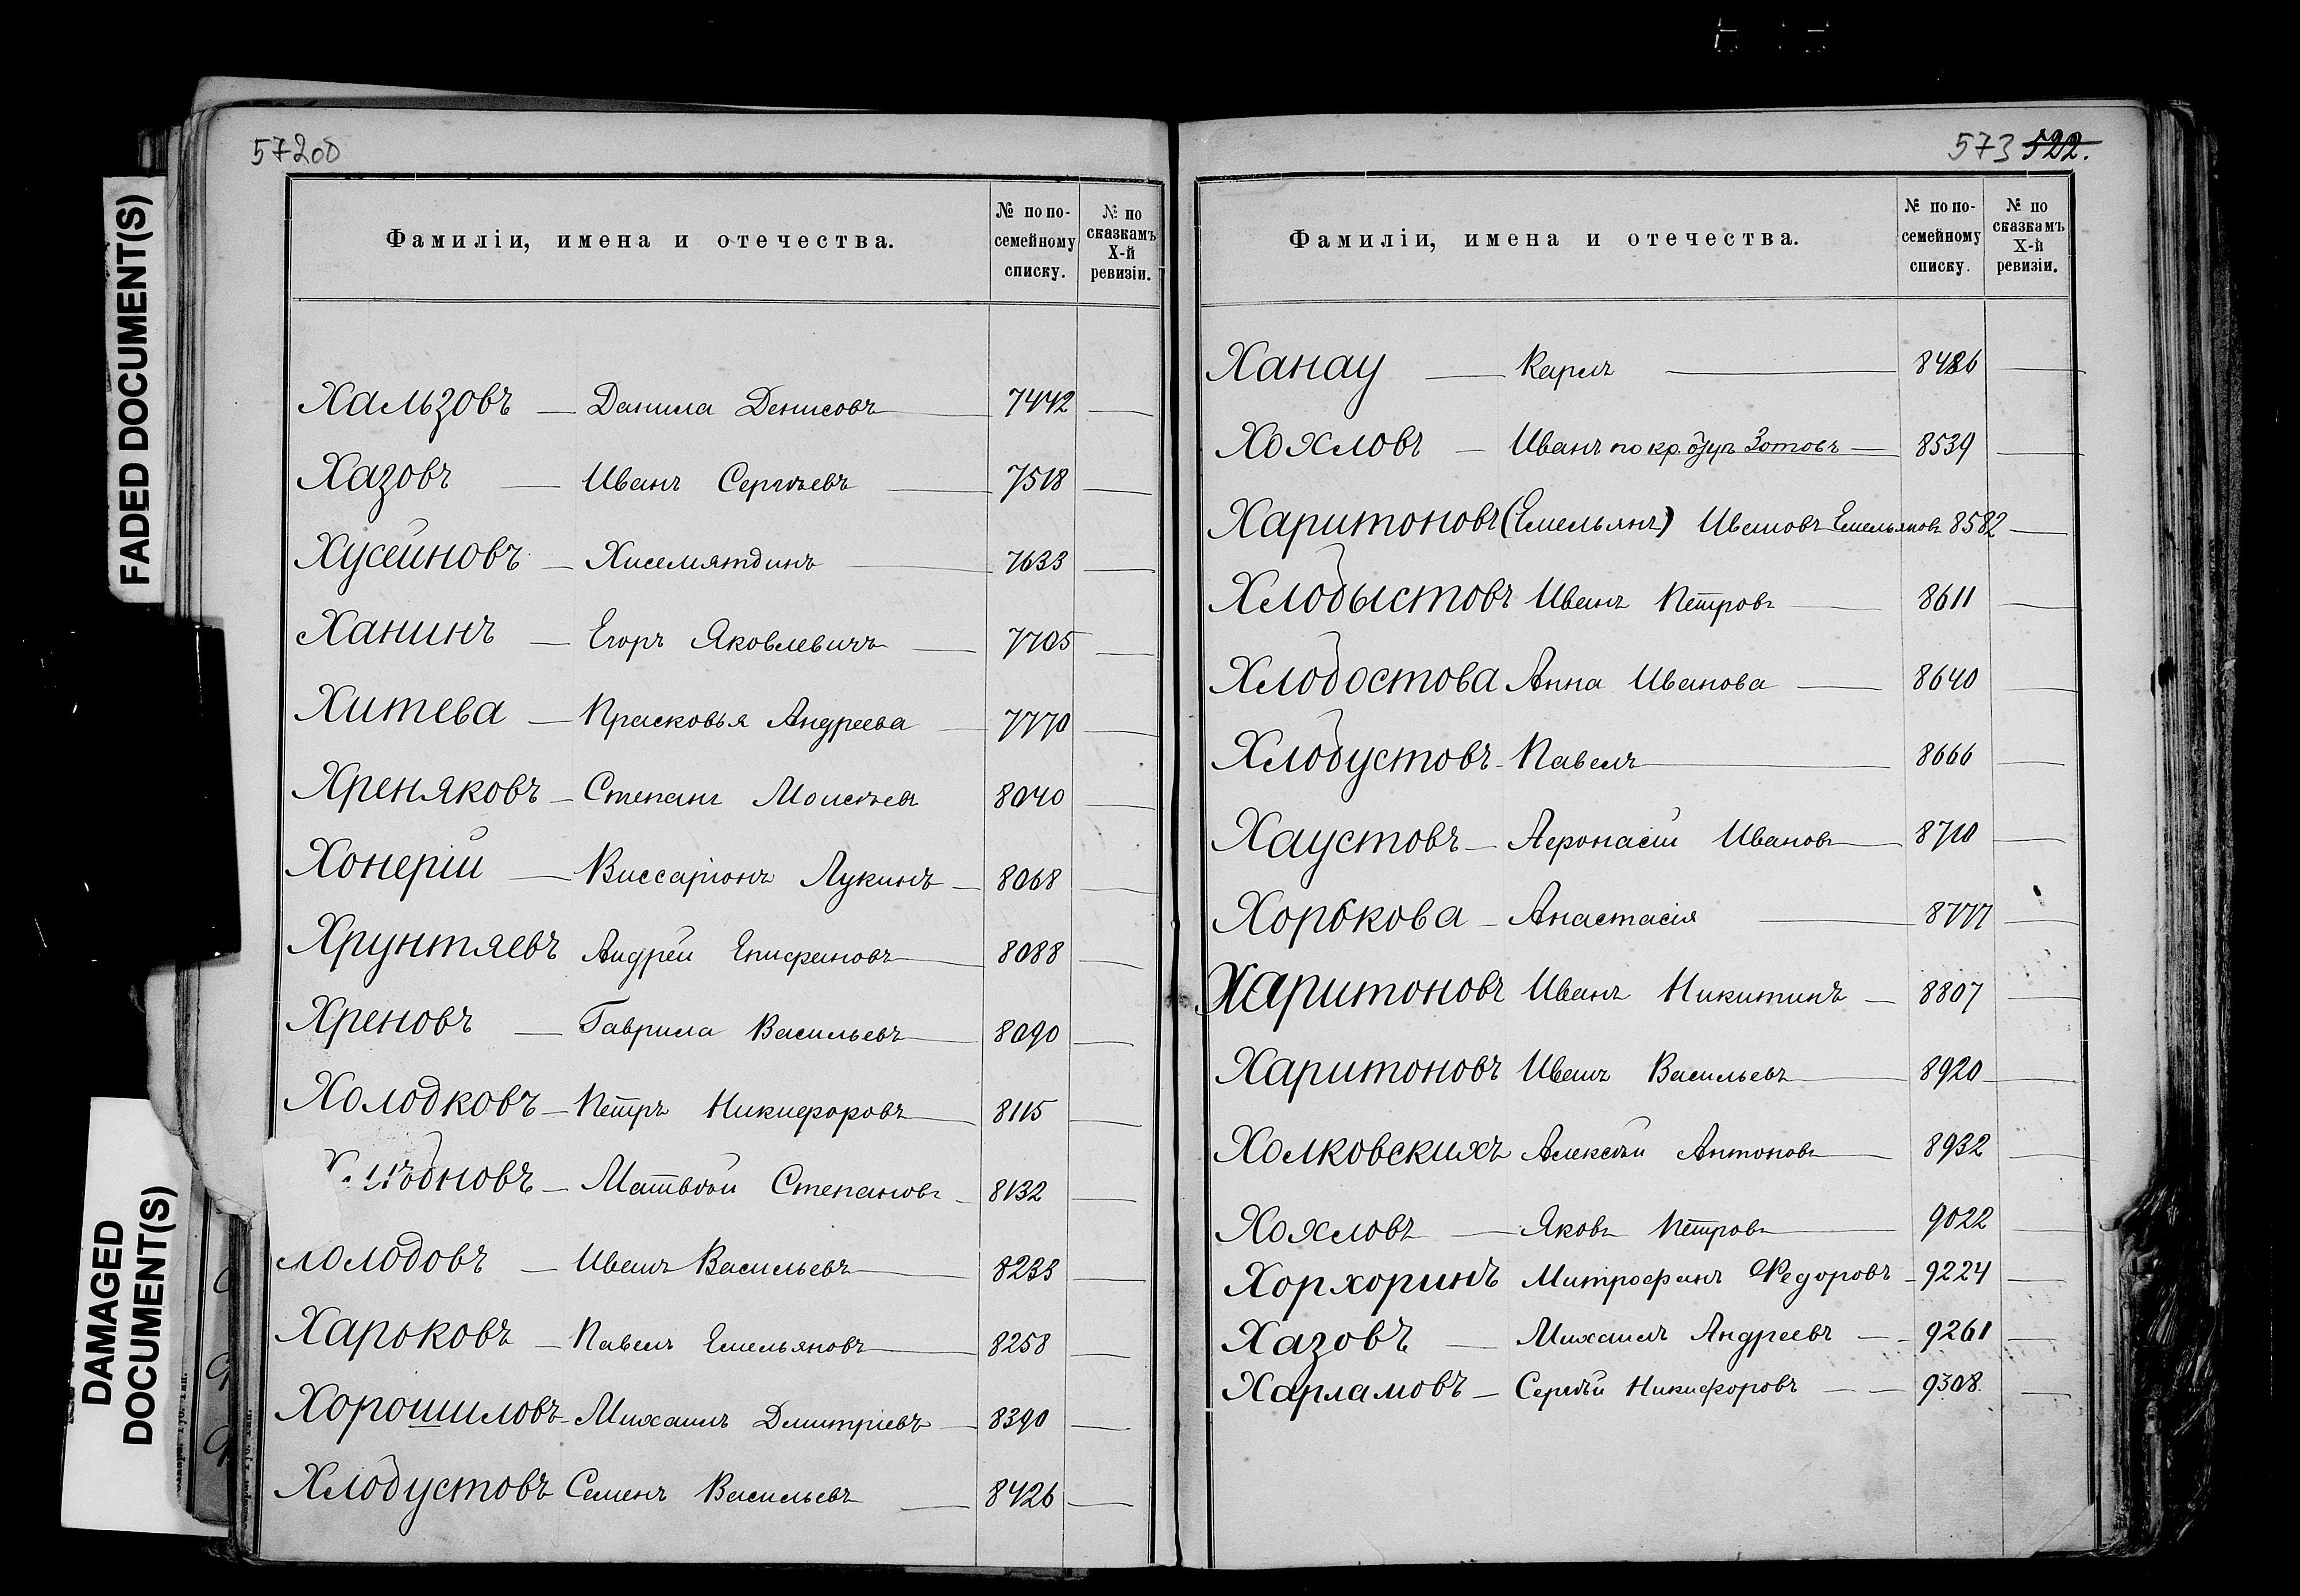 572об
Фамиліи, имена и отечества.
№ по по-
семейному
списку.
№ по
сказкамъ
X-й
ревизіи.
Хальзовъ — Данила Денисовъ 7442
Хазовъ — Иванъ Сергѣевъ 7518
Хусейновъ — Хисемятдинъ 7633
Ханинъ — Егоръ Яковлевичъ 7705
Хитева — Прасковья Андреева 7770
Хреняковъ — Степанъ Моисѣевъ 8040
Хонерій — Виссаріонъ Лукинъ 8068
Хрунтяевъ Андрей Епифановъ 8088
Хреновъ — Гаврила Васильевъ 8090
Холодковъ — Петръ Никифоровъ 8115
Матвѣй Степановъ 8132
олодовъ — Иванъ Васильевъ 8233
Харьковъ — Павелъ Емельяновъ 8258
Хорошиловъ — Михаилъ Дмитріевъ 8390
Хлобустовъ Семенъ Васильевъ 8426
573 522.
Фамиліи, имена и отечества.
№ по по-
семейному
списку.
№ по
сказкамъ
X-й
ревизіи.
Ханау — Карлъ 8486
Хохловъ — Иванъ по кр. Зотовъ 8539
Харитоновъ (Емельянъ) Ивановъ Емельяновъ 8582
Хлобыстовъ Иванъ Петровъ 8611
Хлобостова Анна Иванова 8640
Хлобустовъ Павелъ 8666
Хаустовъ — Афонасій Ивановъ 8710
Хорькова — Анастасія 8777
Харитоновъ Иванъ Никитинъ 8807
Харитоновъ Иванъ Васильевъ 8920
Холковскихъ Алексѣй Антоновъ 8932
Хохловъ — Яковъ Петровъ 9022
Хорхоринъ Митрофанъ Федоровъ 9224
Хазовъ — Михаилъ Андреевъ 9261
Харламовъ — Сергѣй Никифоровъ 9308.
FADED DOCUMENT(S)
DAMAGED
DOCUMENT(S)